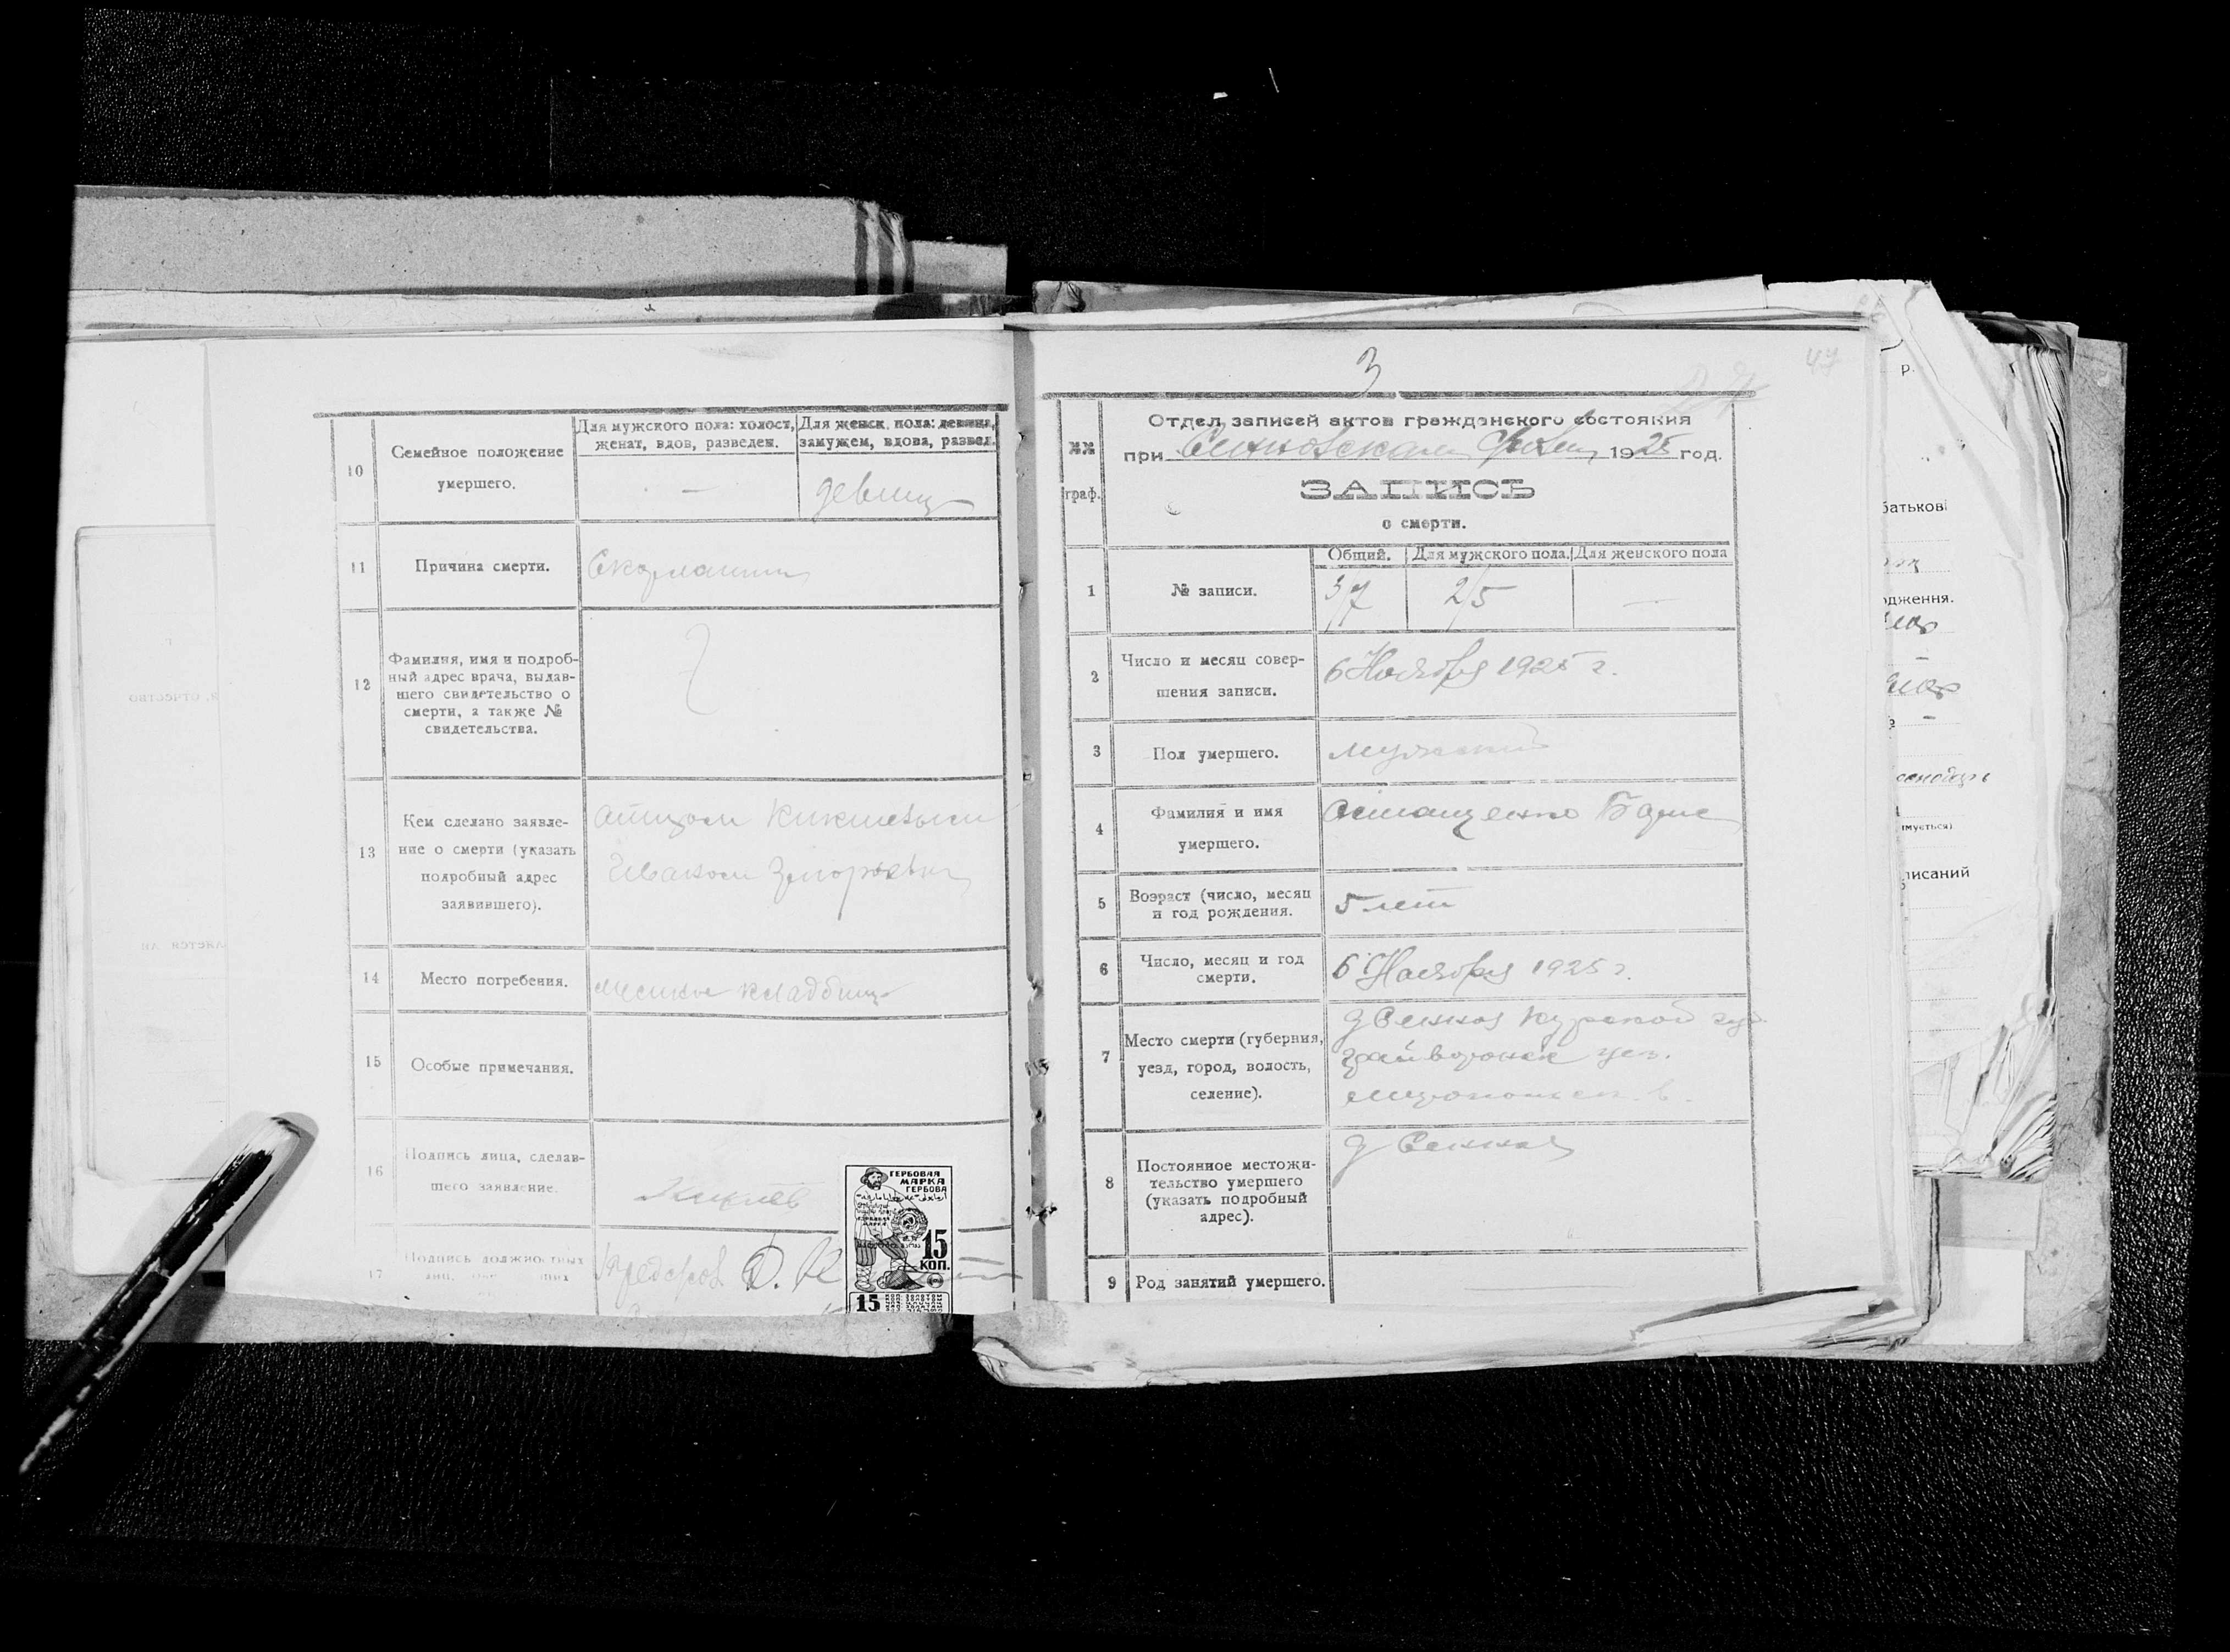 10
Семейное положение
умершего.
Для мужского пола: холост,
женат, вдов, разведен.
Для женск. пола: девица,
замужем, вдова, развед.
—
девица
11
Причина смерти.
Скарлатина
12
Фамилия, имя и подроб-
ный адрес врача, выдав-
шего свидетельство о
смерти, а также №
свидетельства.
13
Кем сделано заявле-
ние о смерти (указать
подробный адрес
заявившего).
Иваном
14
Место погребения.
кладбище
15
Особые примечания.
16
Подпись лица, сделав-
шего заявление.
17
Подпись должностных
лиц,
ГЕРБОВАЯ
МАРКА
ГЕРБОВА
15
КОП.
15
3
47
№№
граф.
Отдел записей актов гражданского состояния
при 1925 год.
ЗАПИСЬ
о смерти.
1
№ записи.
Общий.
Для мужского пола.
Для женского пола
3/7
2/5
—
2
Число и месяц совер-
шения записи.
6 Ноября 1925 г.
3
Пол умершего.
мужской
4
Фамилия и имя
умершего.
Осташенко Борис
5
Возраст (число, месяц
и год рождения.
5 лет
6
Число, месяц и год
смерти.
6 Ноября 1925 г.
7
Место смерти (губерния,
уезд, город, волость,
селение).
д Сенная Курской губ.
Грайворонск уез.
8
Постоянное местожи-
тельство умершего
(указать подробный
адрес).
д Сенная
9
Род занятий умершего.
батькові
одження.
писаний